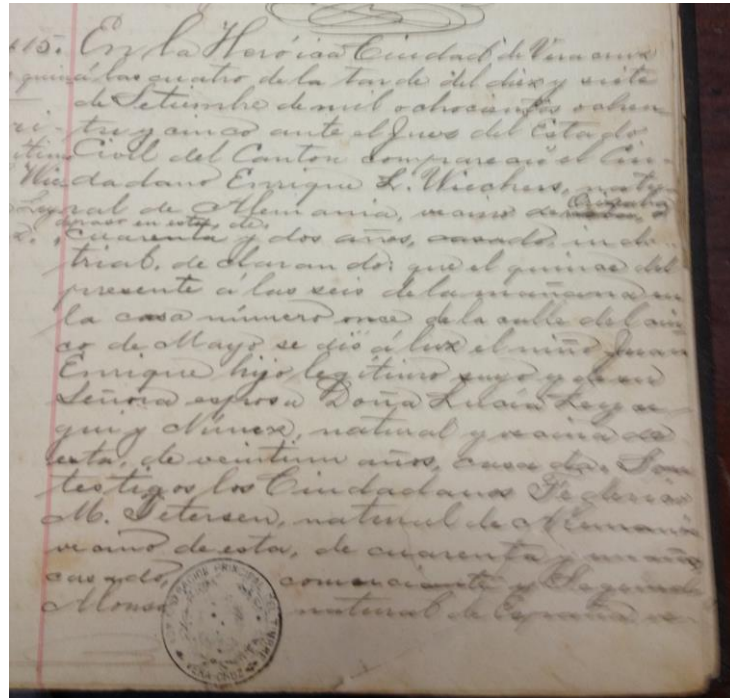 115. En la Heróica Ciudad de Veracruz
á las cuatro de la tarde del diez y siete
de Setiembre de mil ochocientos ochen-
ta y cinco ante el Juez del Estado
Civil del Canton compareció el Ciu-
dadano Enrique L. Wiechers, natu-
ral de Alemania, vecino de Orizaba
de paso en esta, de
cuarenta y dos años, casado, indus-
trial, declarando: que el quince del
presente á las seis de la mañana en
la casa número once de la calle del Cin-
co de Mayo se dió á luz el niño Juan
Enrique hijo legítimo suyo y de su
Señora esposa Doña Lucía Leyse-
gui y Núnez, natural y vecina de
esta, de veintiun años, casada. Son
testigos los Ciudadanos Federico
M. Petersen, natural de Alemania
vecino de esta, de cuarenta y un años
casado, comerciante y Segundo
Alonso natural de España ve-
VERACRUZ